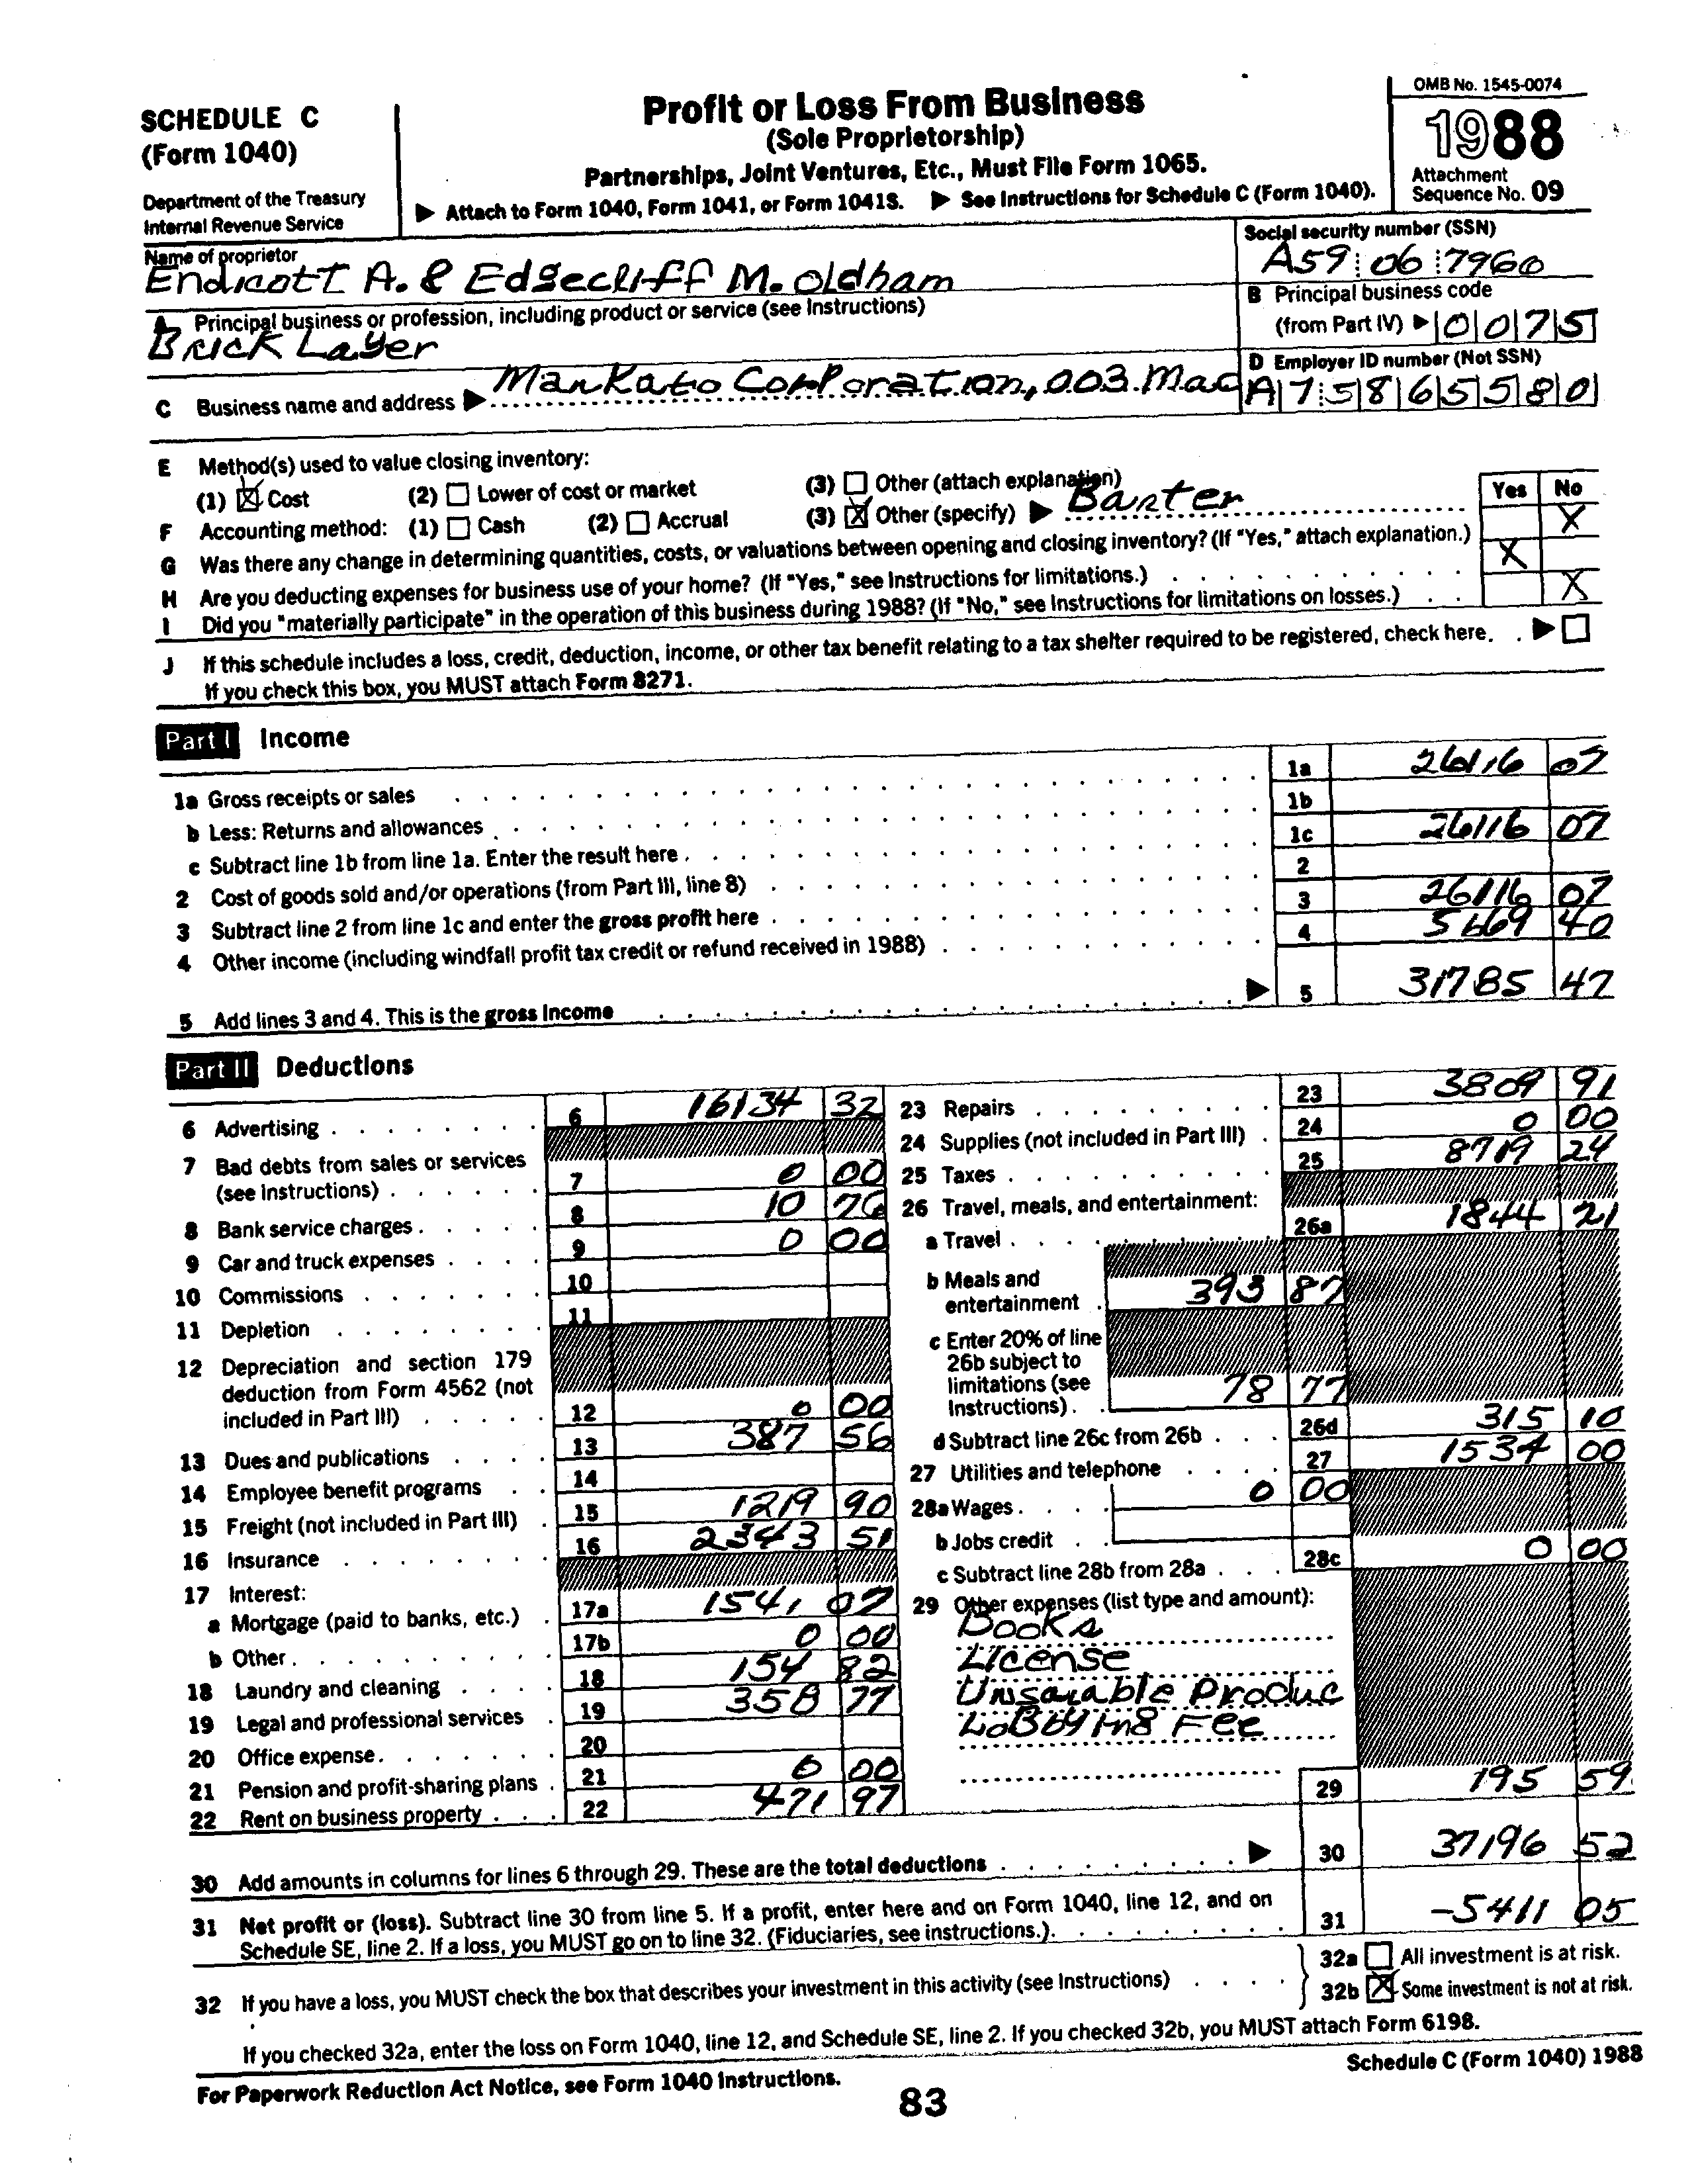 SCHEDULE C
(Form 1040)
Department of the Treasury
Internal Revenue Service
Profit or Loss From Business
(Sole Proprietorship)
Partnerships, Joint Ventures, Etc., Must File Form 1065.
▶ Attach to Form 1040, Form 1041, or Form 1041S. ▶ See Instructions for Schedule C (Form 1040).
OMB No. 1545-0074
1988
Attachment
Sequence No. 09
Name of proprietor
Endicott A. & Edgecliff M. Oldham
Social security number (SSN)
A59 06 7960
A Principal business or profession, including product or service (see Instructions)
Brick Layer
B Principal business code
(from Part IV) ▶ 0 0 7 5
C Business name and address ▶ Mankato Corporation, 003 Mac
D Employer ID number (Not SSN)
A 7 5 8 6 5 5 8 0
E Method(s) used to value closing inventory:
(1) ☒ Cost (2) ☐ Lower of cost or market (3) ☐ Other (attach explanation)
F Accounting method: (1) ☐ Cash (2) ☐ Accrual (3) ☒ Other (specify) ▶ Barter
Yes No
G Was there any change in determining quantities, costs, or valuations between opening and closing inventory? (If "Yes," attach explanation.) X
H Are you deducting expenses for business use of your home? (If "Yes," see Instructions for limitations.) X
I Did you "materially participate" in the operation of this business during 1988? (If "No," see Instructions for limitations on losses.) X
J If this schedule includes a loss, credit, deduction, income, or other tax benefit relating to a tax shelter required to be registered, check here. ▶ ☐
If you check this box, you MUST attach Form 8271.
Part I Income
1a Gross receipts or sales 1a 26116 07
b Less: Returns and allowances 1b
c Subtract line 1b from line 1a. Enter the result here 1c 26116 07
2 Cost of goods sold and/or operations (from Part III, line 8) 2
3 Subtract line 2 from line 1c and enter the gross profit here 3 26116 07
4 Other income (including windfall profit tax credit or refund received in 1988) 4 5669 40
5 Add lines 3 and 4. This is the gross income ▶ 5 31785 47
Part II Deductions
6 Advertising 6 16134 32
7 Bad debts from sales or services
(see Instructions) 7 0 00
8 Bank service charges 8 10 76
9 Car and truck expenses 9 0 00
10 Commissions 10
11 Depletion 11
12 Depreciation and section 179
deduction from Form 4562 (not
included in Part III) 12 0 00
13 Dues and publications 13 387 56
14 Employee benefit programs 14
15 Freight (not included in Part III) 15 1219 90
16 Insurance 16 2343 51
17 Interest:
a Mortgage (paid to banks, etc.) 17a 1541 07
b Other 17b 0 00
18 Laundry and cleaning 18 154 82
19 Legal and professional services 19 358 77
20 Office expense 20
21 Pension and profit-sharing plans 21 0 00
22 Rent on business property 22 471 97
23 Repairs 23 3809 91
24 Supplies (not included in Part III) 24 0 00
25 Taxes 25 8719 24
26 Travel, meals, and entertainment:
a Travel 26a 1844 21
b Meals and
entertainment 393 87
c Enter 20% of line
26b subject to
limitations (see
Instructions) 78 77
d Subtract line 26c from 26b 26d 315 10
27 Utilities and telephone 27 1534 00
28a Wages 0 00
b Jobs credit
c Subtract line 28b from 28a 28c 0 00
29 Other expenses (list type and amount):
Books
License
Unsaiable Produc
Lobbying Fee
29 195 59
30 Add amounts in columns for lines 6 through 29. These are the total deductions ▶ 30 37196 52
31 Net profit or (loss). Subtract line 30 from line 5. If a profit, enter here and on Form 1040, line 12, and on
Schedule SE, line 2. If a loss, you MUST go on to line 32. (Fiduciaries, see instructions.) 31 -5411 05
32 If you have a loss, you MUST check the box that describes your investment in this activity (see Instructions)
32a ☐ All investment is at risk.
32b ☒ Some investment is not at risk.
If you checked 32a, enter the loss on Form 1040, line 12, and Schedule SE, line 2. If you checked 32b, you MUST attach Form 6198.
For Paperwork Reduction Act Notice, see Form 1040 Instructions.
Schedule C (Form 1040) 1988
83